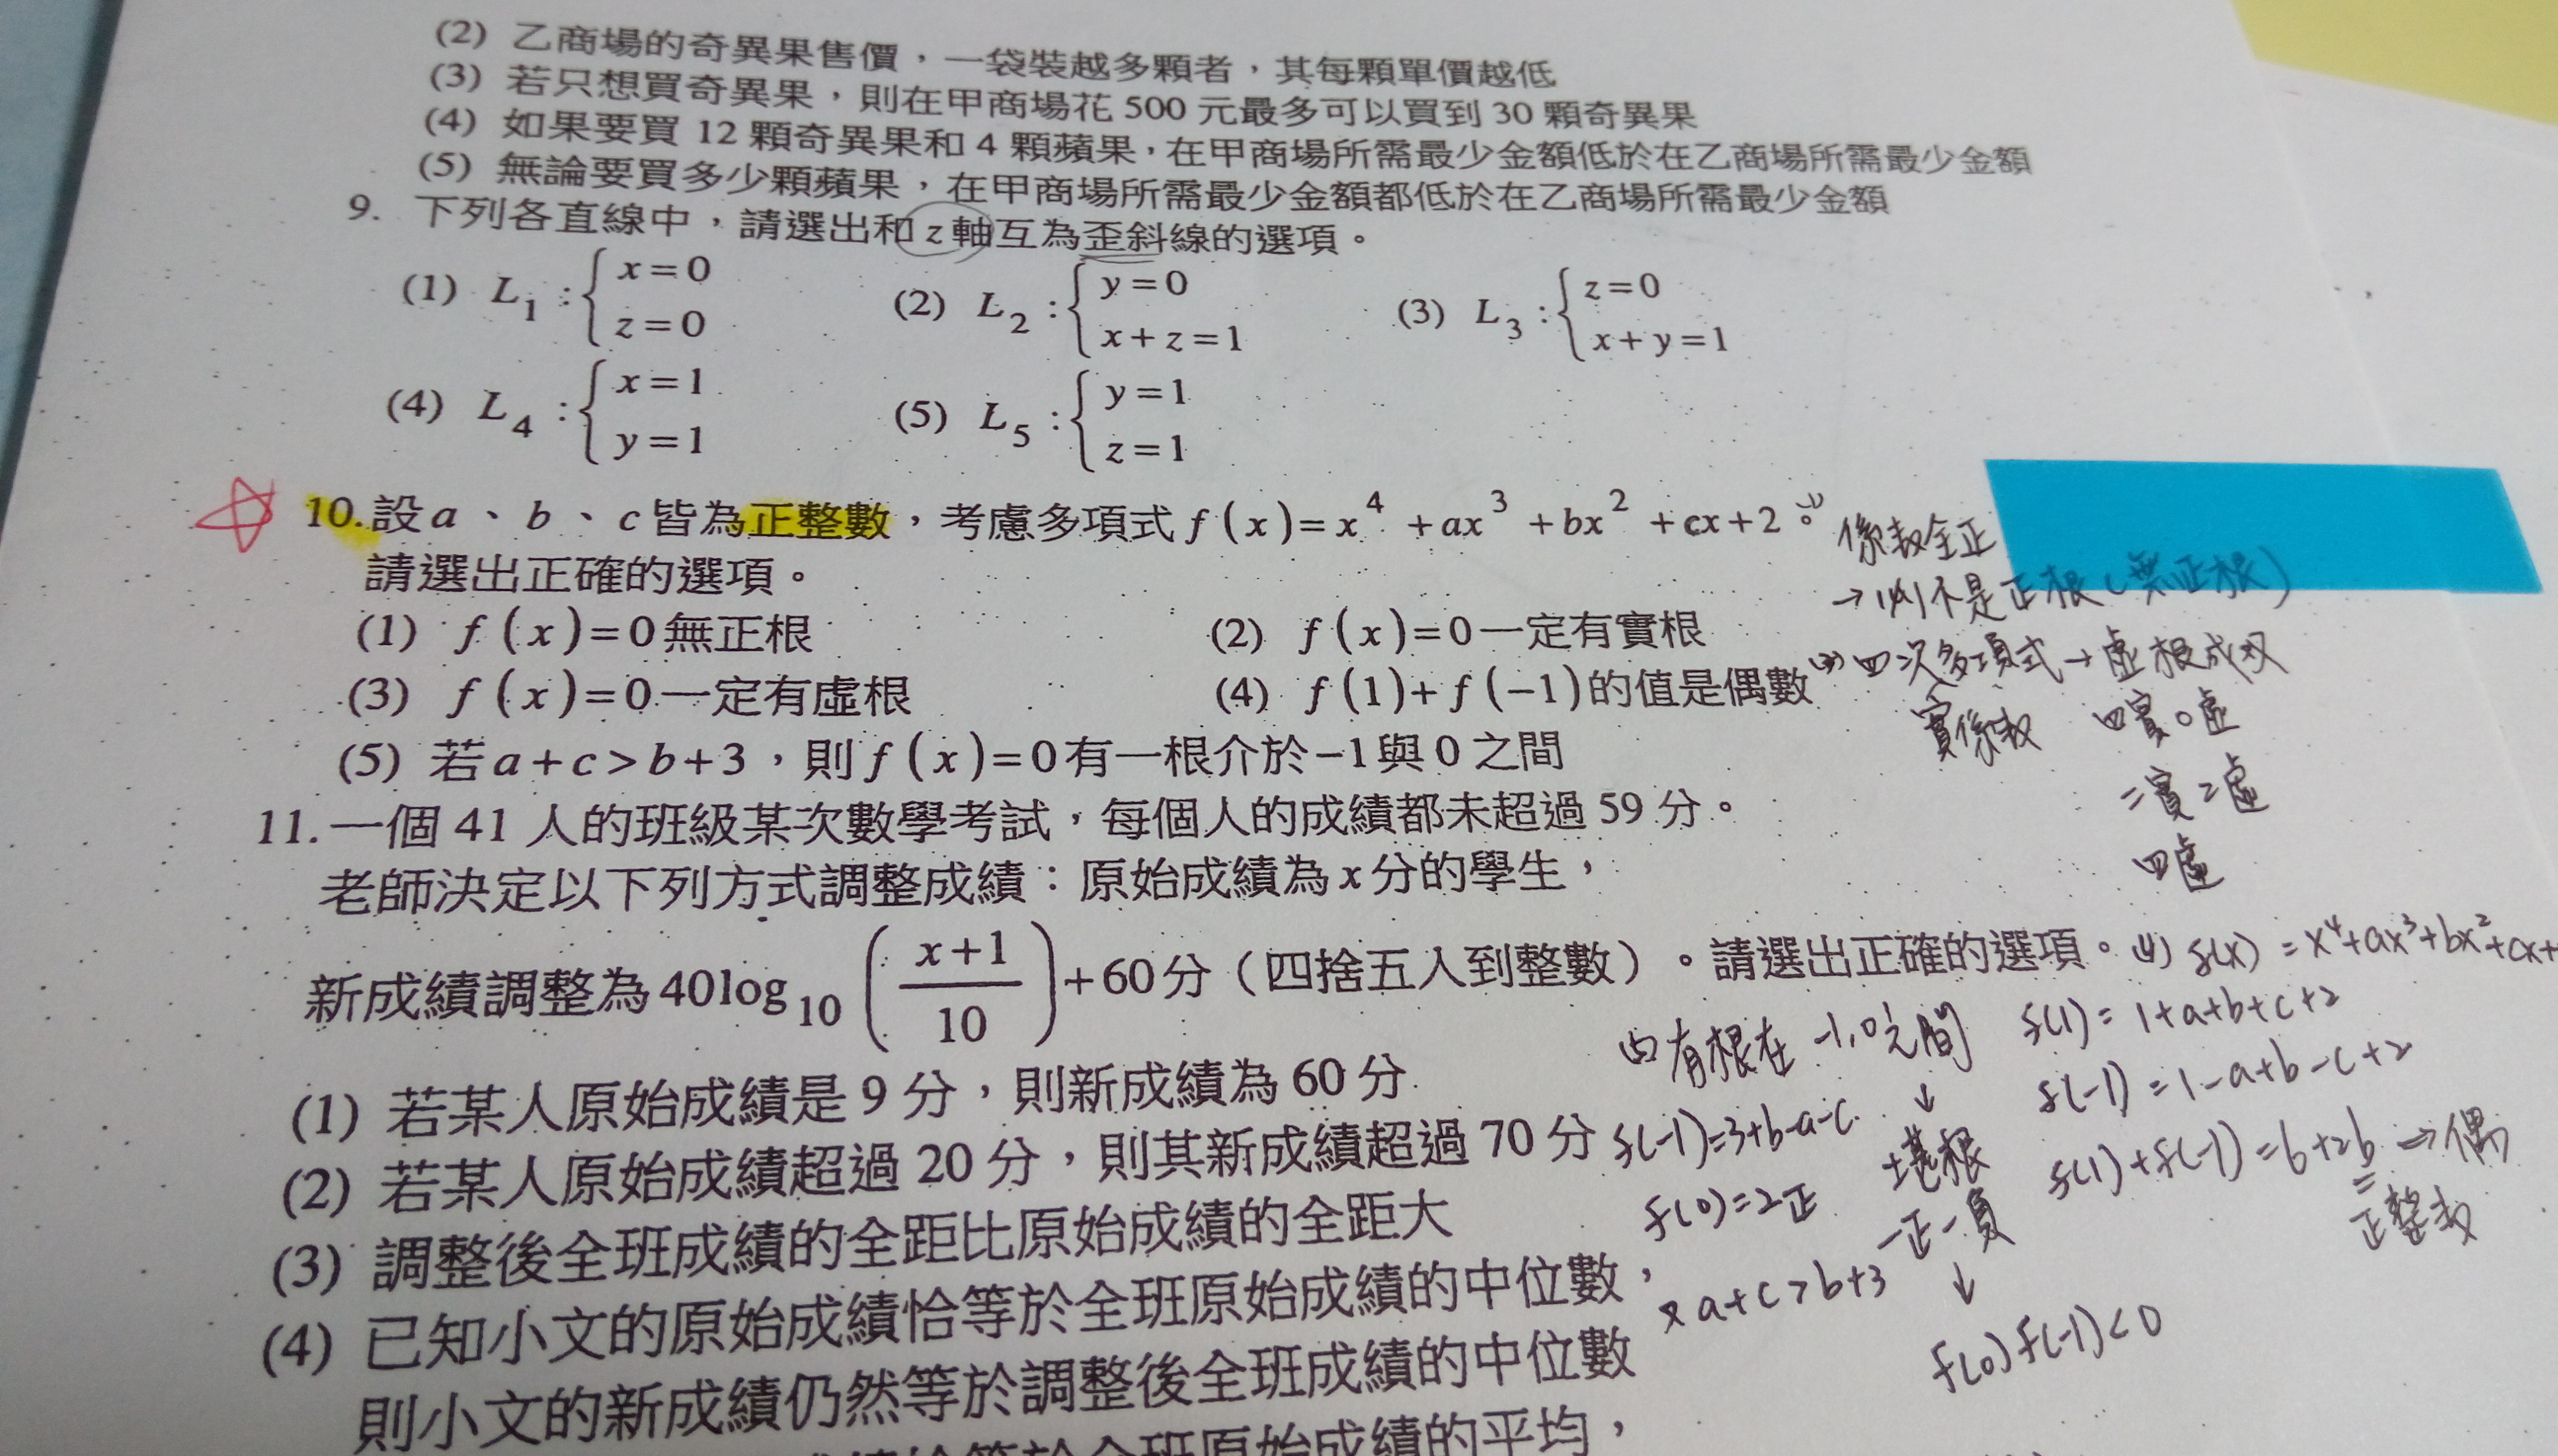 (2) 乙商場的奇異果售價，一袋裝越多顆者，其每顆單價越低
(3) 若只想買奇異果，則在甲商場花 500 元最多可以買到 30 顆奇異果
(4) 如果要買 12 顆奇異果和 4 顆蘋果，在甲商場所需最少金額低於在乙商場所需最少金額
(5) 無論要買多少顆蘋果，在甲商場所需最少金額都低於在乙商場所需最少金額
9. 下列各直線中，請選出和 z 軸互為歪斜線的選項。
(1) L₁ : { x=0
z=0
(2) L₂ : { y=0
x+z=1
(3) L₃ : { z=0
x+y=1
(4) L₄ : { x=1
y=1
(5) L₅ : { y=1
z=1
10. 設 a、b、c 皆為正整數，考慮多項式 f(x)=x⁴+ax³+bx²+cx+2。
請選出正確的選項。
(1) f(x)=0 無正根
(2) f(x)=0 一定有實根
(3) f(x)=0 一定有虛根
(4) f(1)+f(-1) 的值是偶數
(5) 若 a+c>b+3，則 f(x)=0 有一根介於 -1 與 0 之間
係數全正
不是正根(無正根)
四次多項式→虛根成双
實係數
四實0虛
二實二虛
四虛
11. 一個 41 人的班級某次數學考試，每個人的成績都未超過 59 分。
老師決定以下列方式調整成績：原始成績為 x 分的學生，
新成績調整為 40log₁₀((x+1)/10)+60 分（四捨五入到整數）。請選出正確的選項。
(1) 若某人原始成績是 9 分，則新成績為 60 分
(2) 若某人原始成績超過 20 分，則其新成績超過 70 分
(3) 調整後全班成績的全距比原始成績的全距大
(4) 已知小文的原始成績恰等於全班原始成績的中位數，
則小文的新成績仍然等於調整後全班成績的中位數
全班原始成績的平均，
(4) f(x)=x⁴+ax³+bx²+cx+
f(1)=1+a+b+c+2
f(-1)=1-a+b-c+2
f(1)+f(-1)=6+2b→偶
正整數
有根在 -1,0之間
↓
堪根
一正一負
↓
f(0)f(-1)<0
f(-1)=3+b-a-c
f(0)=2正
又 a+c>b+3